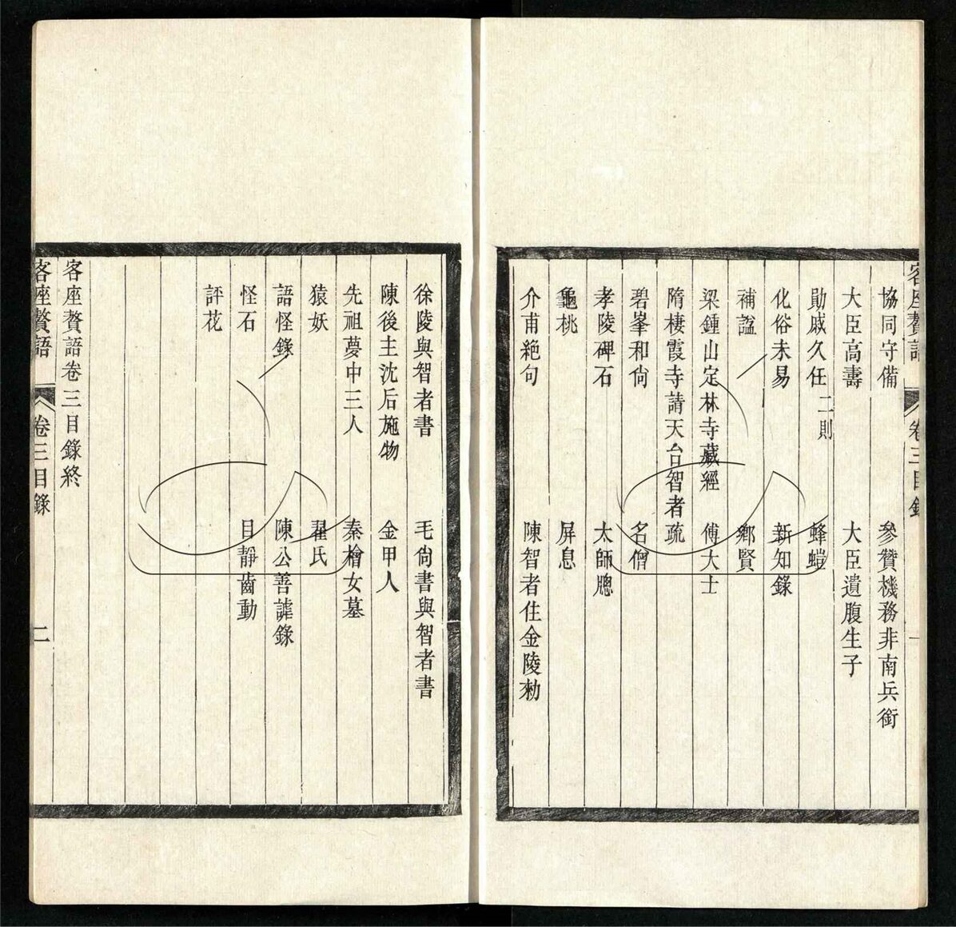 客座贅語 卷三目錄 一
協同守備 參贊機務非南兵銜
大臣高壽 大臣遺腹生子
勛戚久任二則 蜂螘
化俗未易 新知錄
補諡 鄉賢
梁鍾山定林寺藏經 傅大士
隋棲霞寺請天台智者疏
碧峯和尙 名僧
孝陵碑石 太師牕
龜桃 屏息
介甫絶句 陳智者住金陵勑
徐陵與智者書 毛尙書與智者書
陳後主沈后施物 金甲人
先祖夢中三人 秦檜女墓
猿妖 翟氏
語怪錄 陳公善謔錄
怪石 目靜齒動
評花
客座贅語卷三目錄終
客座贅語 卷三目錄 二